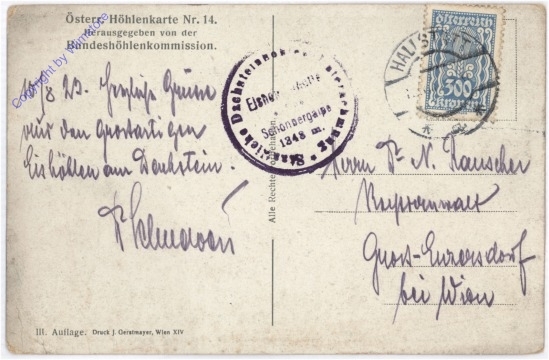 Österr. Höhlenkarte Nr. 14.
Herausgegeben von der
Bundeshöhlenkommission.
Copyright by Wimafore
8 23. Herzliche Grüsse
aus den grossartigen
Eishöhlen am Dachstein.
Schönbergalpe
1348 m.
Alle Rechte vorbehalten.
HALLSTATT
Österreich
300
Kronen
Herrn Dr. N. Rauscher
Rechtsanwalt
Gross-Enzersdorf
bei Wien
III. Auflage. Druck J. Gerstmayer, Wien XIV